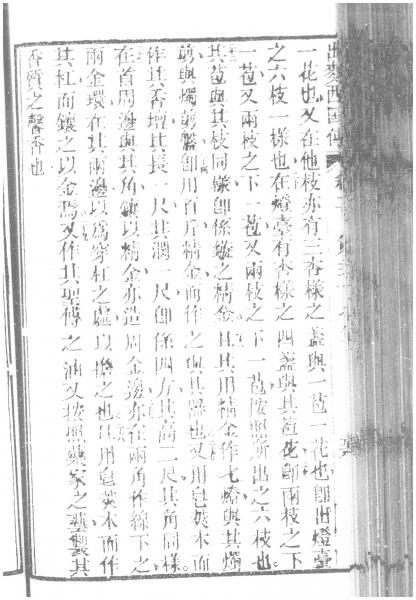 出麥西國傳
一花也又在他枝亦有三杏樣之盞與一苞一花也卽由燈臺
之六枝一樣也在燈臺有杏樣之四盞與其苞花卽兩枝之下
一苞又兩枝之下一苞又兩枝之下一苞按照所出之六枝也
其苞與其枝同樣卽係鏇之精金且其用精金作七燈與其燭
剪與燭剪盤卽用百斤精金而作之與其器也又用皂莢木而
作其香增其長一尺其濶一尺卽係四方其高二尺其角同樣
在首周邊與其角鑲以精金亦造周金邊亦在兩角作線下之
兩金環在其兩邊以爲穿杠之處以擔之也且用皂莢木而作
其杠而鑲之以金焉又作其聖傅之油又按照藥家之藝製其
香質之馨香也